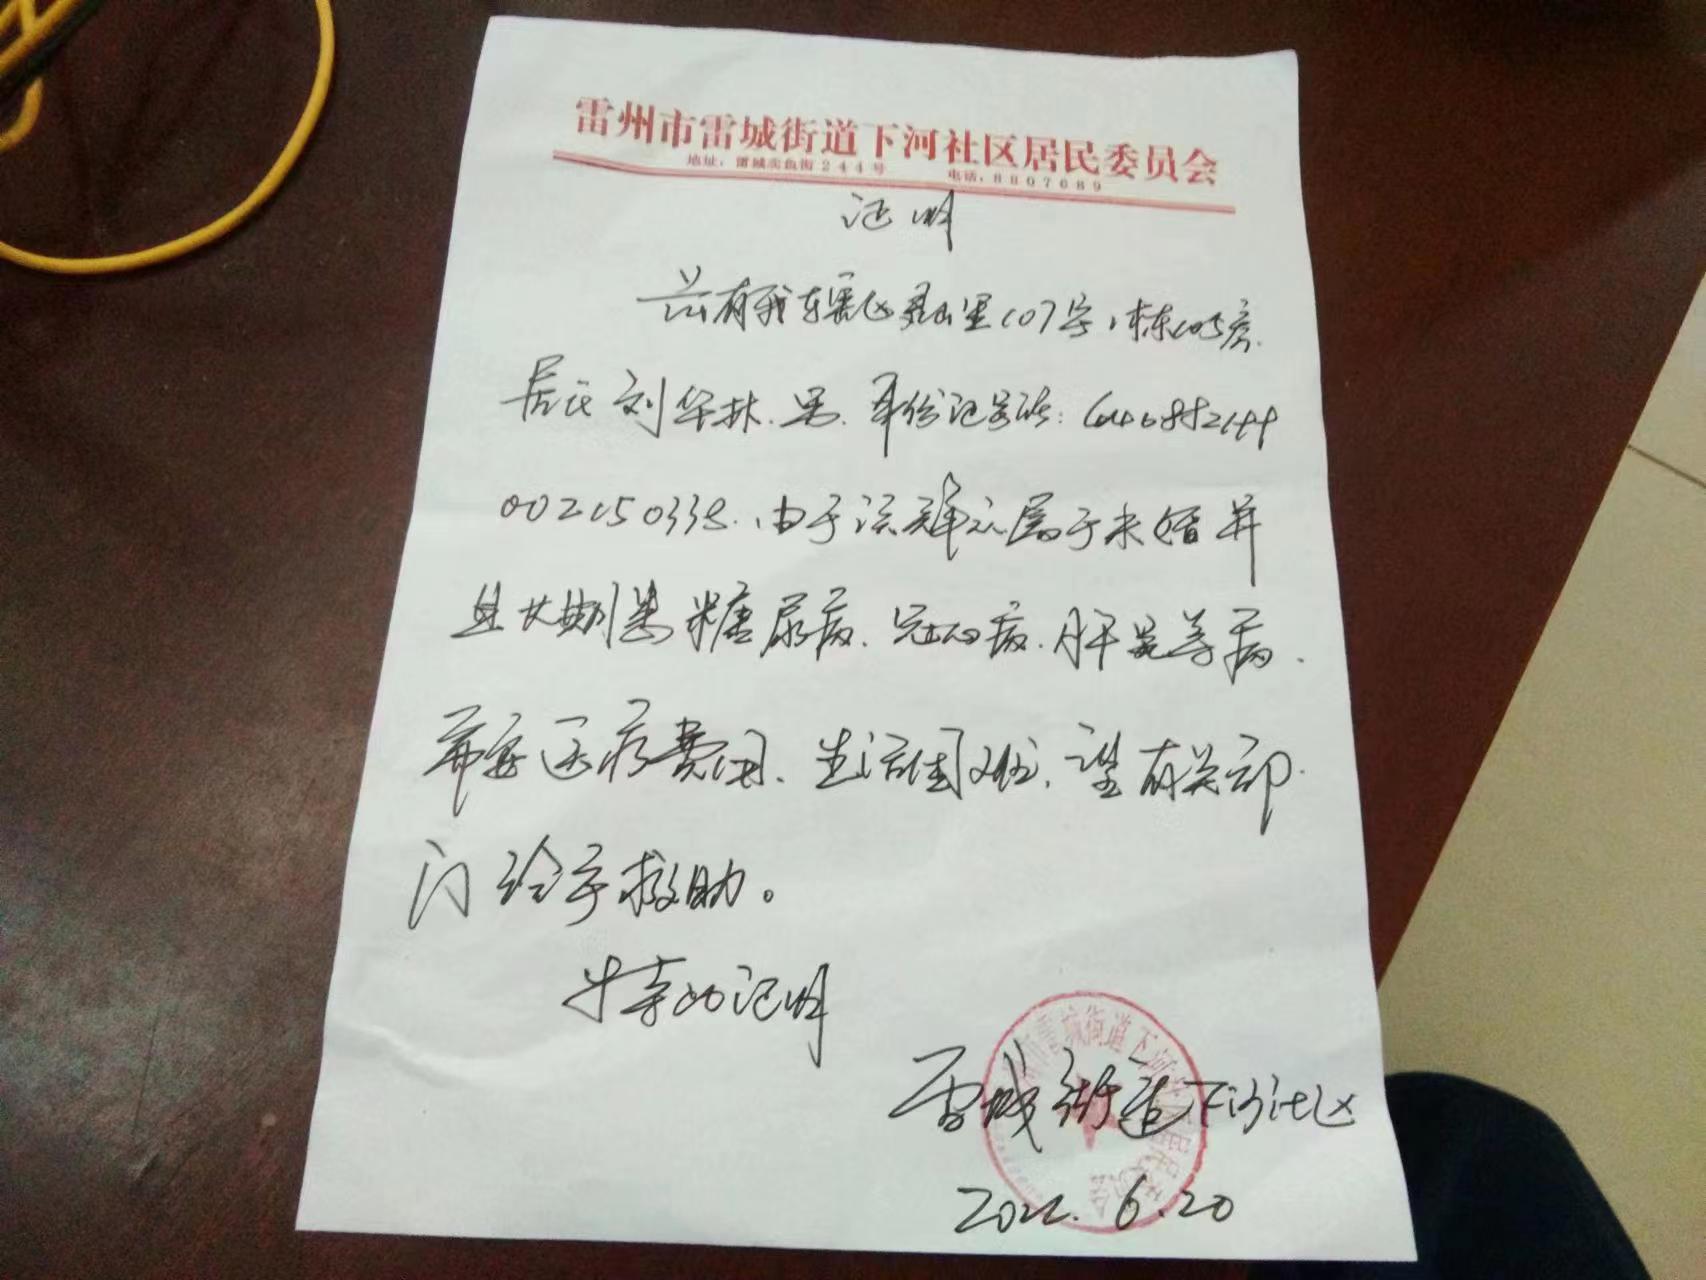 雷州市雷城街道下河社区居民委员会
地址：雷城卖鱼街244号 电话：8807689
证明
兹有我辖区灵山里107号1栋105房
居民刘华林.男.身份证号码:
由于该群众属于未婚并
且长期患糖尿病.冠心病.肝炎等病.
需要医疗费用、生活困难、望有关部
门给予救助。
特此证明
雷城街道下河社区
2022.6.20